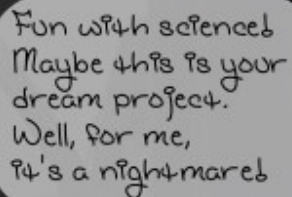 Fun with science!
Maybe this is your
dream project.
Well, for me,
it's a nightmare!